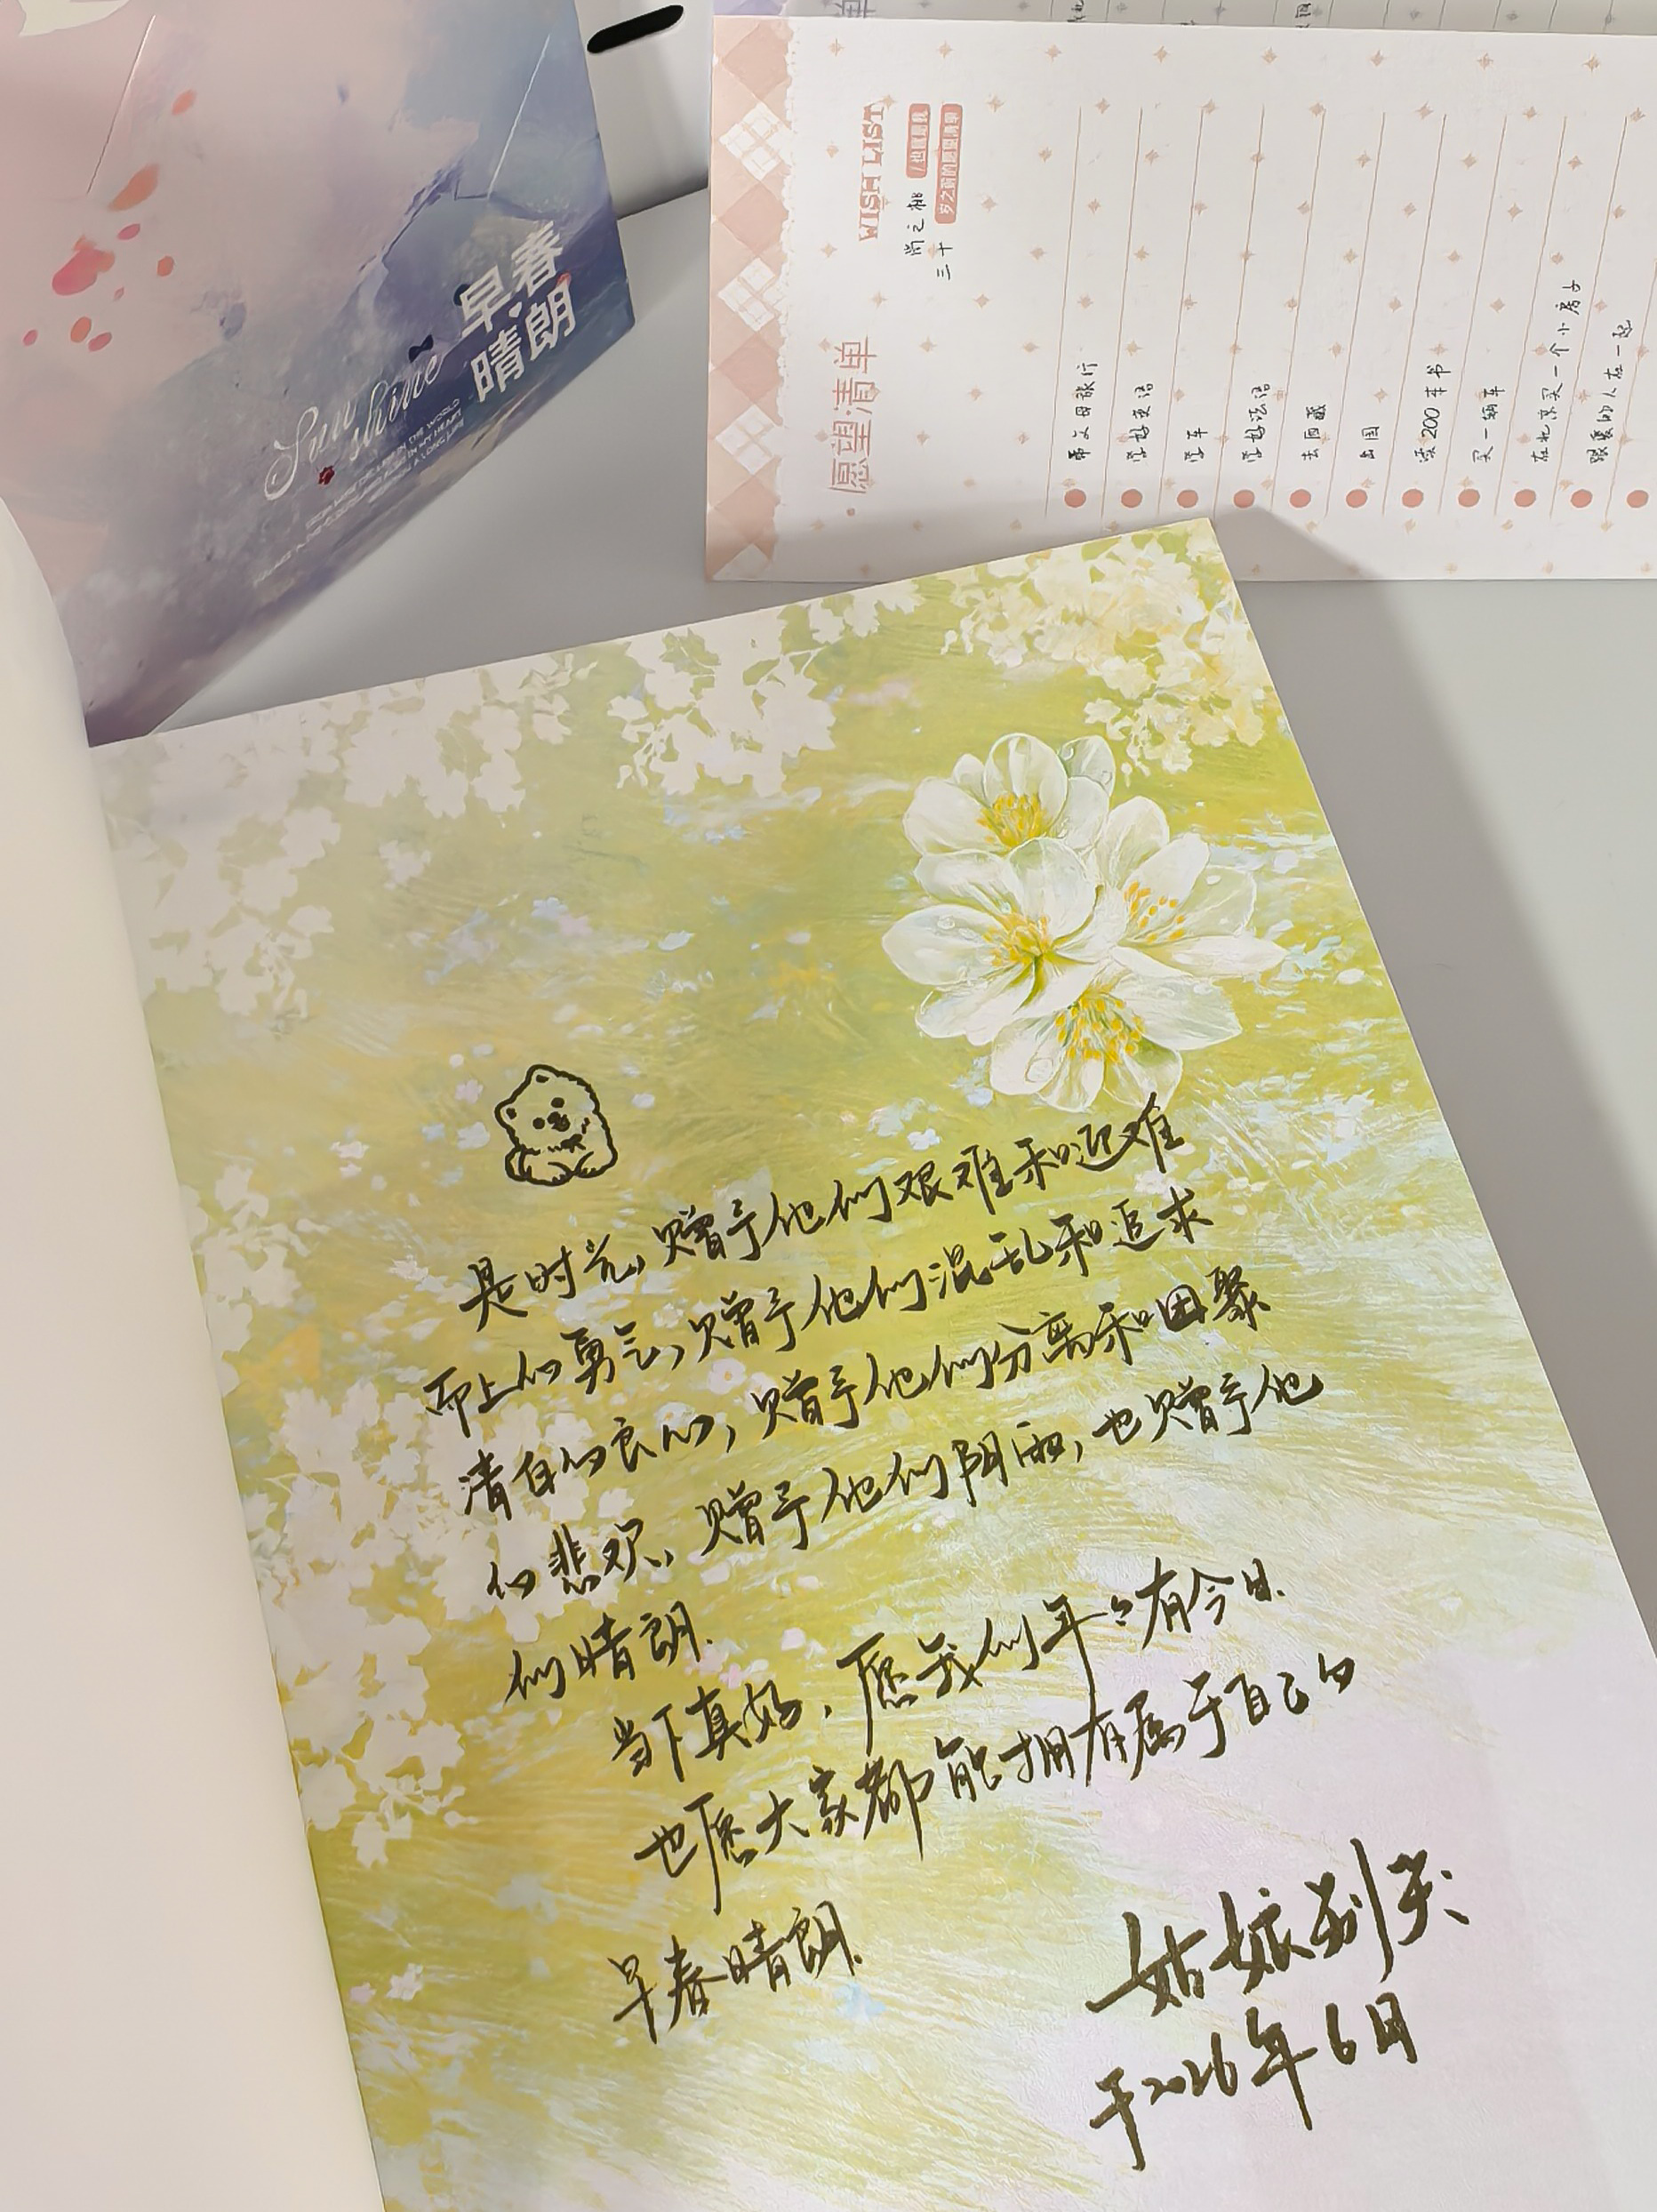 早春
晴朗
Sunshine
愿望清单
WISH LIST
尚之桃
三十
岁之前的愿望清单
带父母旅行
学好英语
学车
学好法语
去西藏
出国
读200本书
买一辆车
在北京买一个小房子
跟爱的人在一起
是时光,赠予他们艰难和迎难
而上的勇气,赠予他们混乱和追求
清白的良心,赠予他们分离和团聚
的悲欢,赠予他们阴雨,也赠予他
们晴朗.
当下真好.愿我们年々有今日.
也愿大家都能拥有属于自己的
早春晴朗.
姑娘别哭
于2026年6月